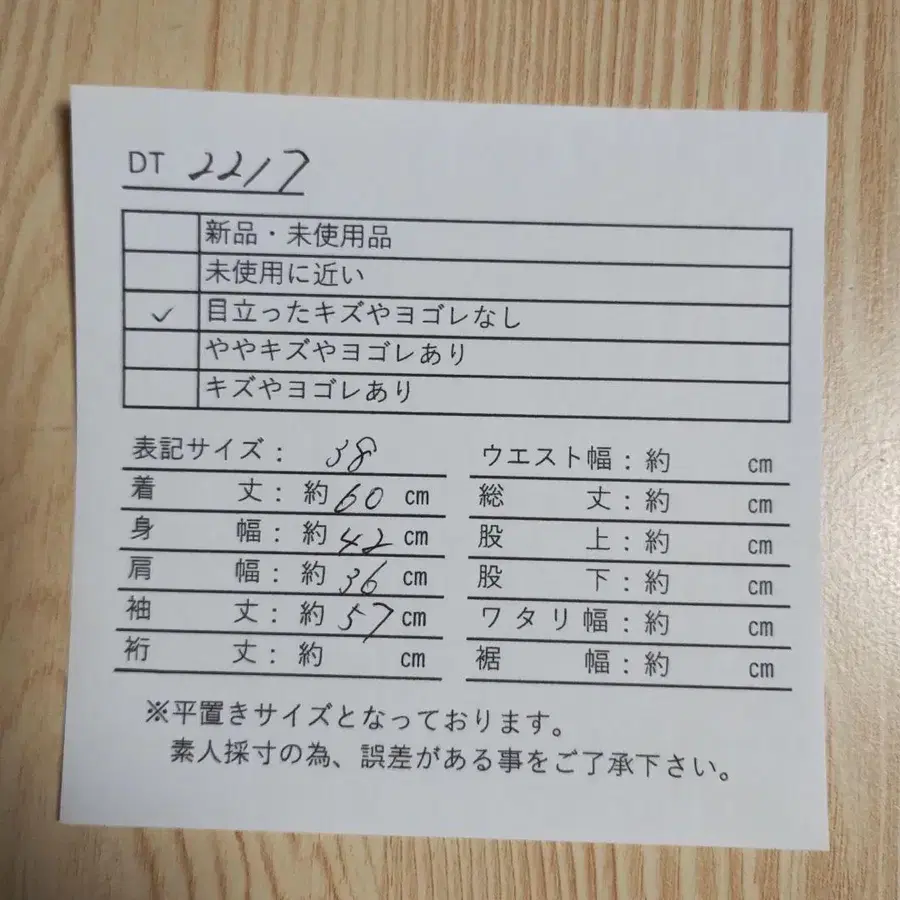 DT 2217
新品・未使用品
未使用に近い
✓ 目立ったキズやヨゴレなし
ややキズやヨゴレあり
キズやヨゴレあり
表記サイズ： 38
着丈：約60cm
身幅：約42cm
肩幅：約36cm
袖丈：約57cm
裄丈：約 cm
ウエスト幅：約 cm
総丈：約 cm
股上：約 cm
股下：約 cm
ワタリ幅：約 cm
裾幅：約 cm
※平置きサイズとなっております。
素人採寸の為、誤差がある事をご了承下さい。